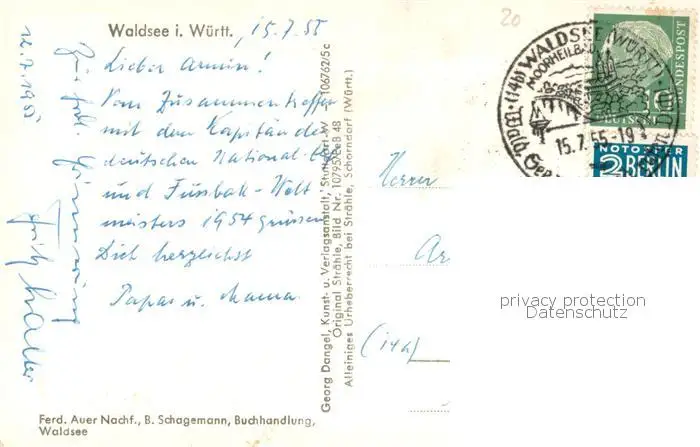 Waldsee i. Württ. 15.7.55
Lieber Armin!
Vom Zusammentreffen
mit dem Kapitän der
deutschen National-
und Fussball-Welt
meisters 1954 grüssen
Dich herzlichst
Papa u. Mama
12.7.1955
Zur frdl. Erinnerung
Fritz Walter
Ferd. Auer Nachf., B. Schagemann, Buchhandlung,
Waldsee
Georg Dangel, Kunst- u. Verlagsanstalt, Stuttgart-W 106762/5c
Original Strähle, Bild Nr. 10795/EeB 48
Alleiniges Urheberrecht bei Strähle, Schorndorf (Württ.)
20
(14b) WALDSEE (WÜRTT)
MOORHEILBAD
15.7.55-19
10
DEUTSCHE
BUNDESPOST
NOTOPFER
2 BERLIN
Herrn
Ar
(14a)
privacy protection
Datenschutz